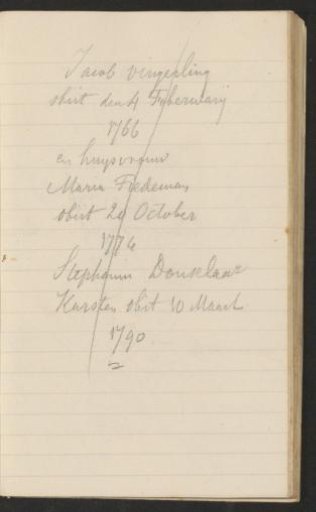 Jacob Vingerling
obiit den 4 Feberwarij
1766
en huysvrouw
Maria Fredeman
obiit 20 October
1774
Stephanus Donselaar
Karsten obit 10 Maart
1790